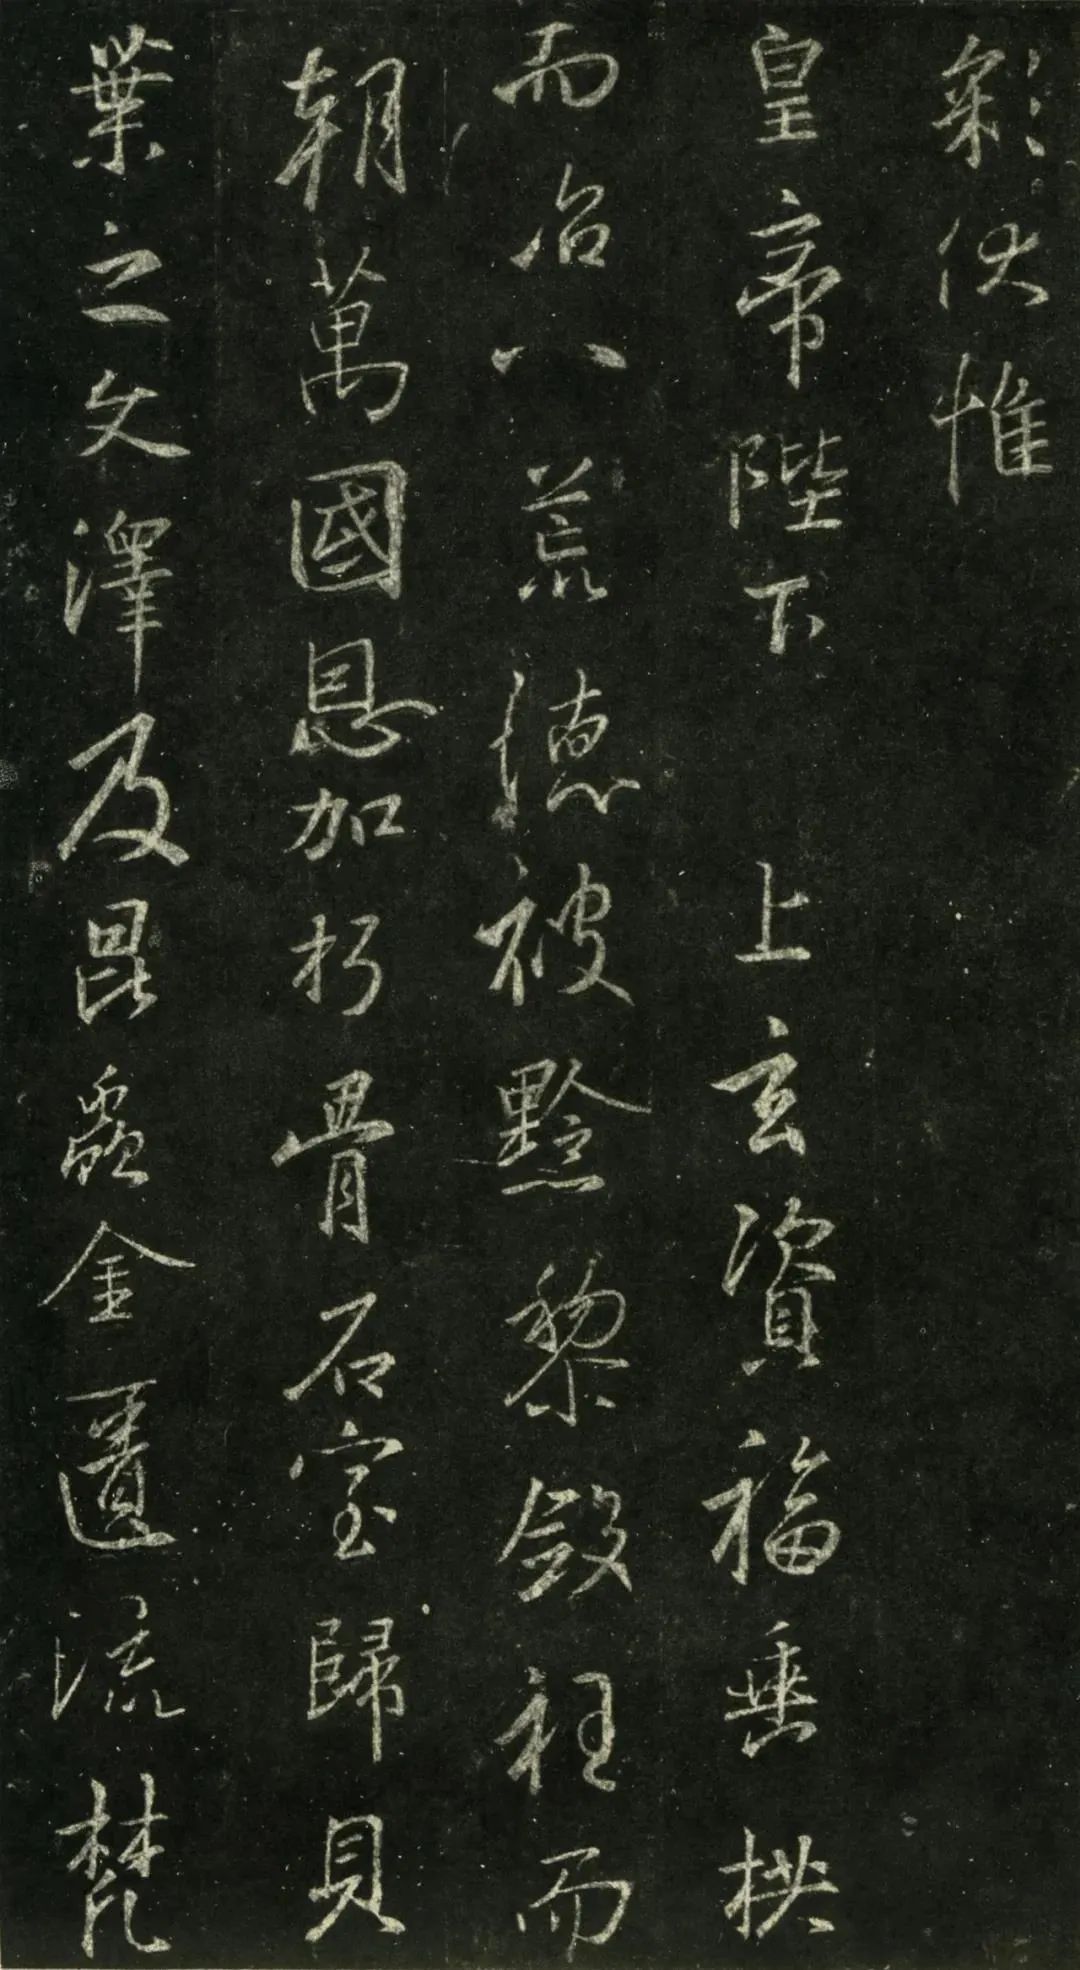 彩伏惟
皇帝陛下 上玄資福垂拱
而治八荒德被黔黎斂衽而
朝萬國恩加朽骨石室歸貝
葉之文澤及昆蟲金匱流梵